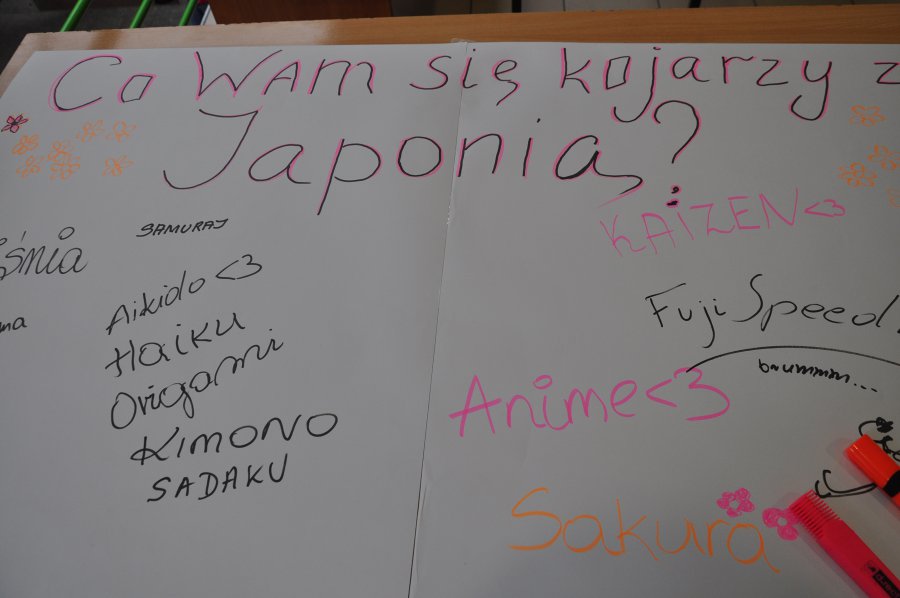 Co WAM się kojarzy z
Japonią?
SAMURAJ
Aikido <3
Haiku
Origami
KIMONO
SADAKU
KAIZEN <3
Fuji Speed
brummm...
Anime <3
Sakura